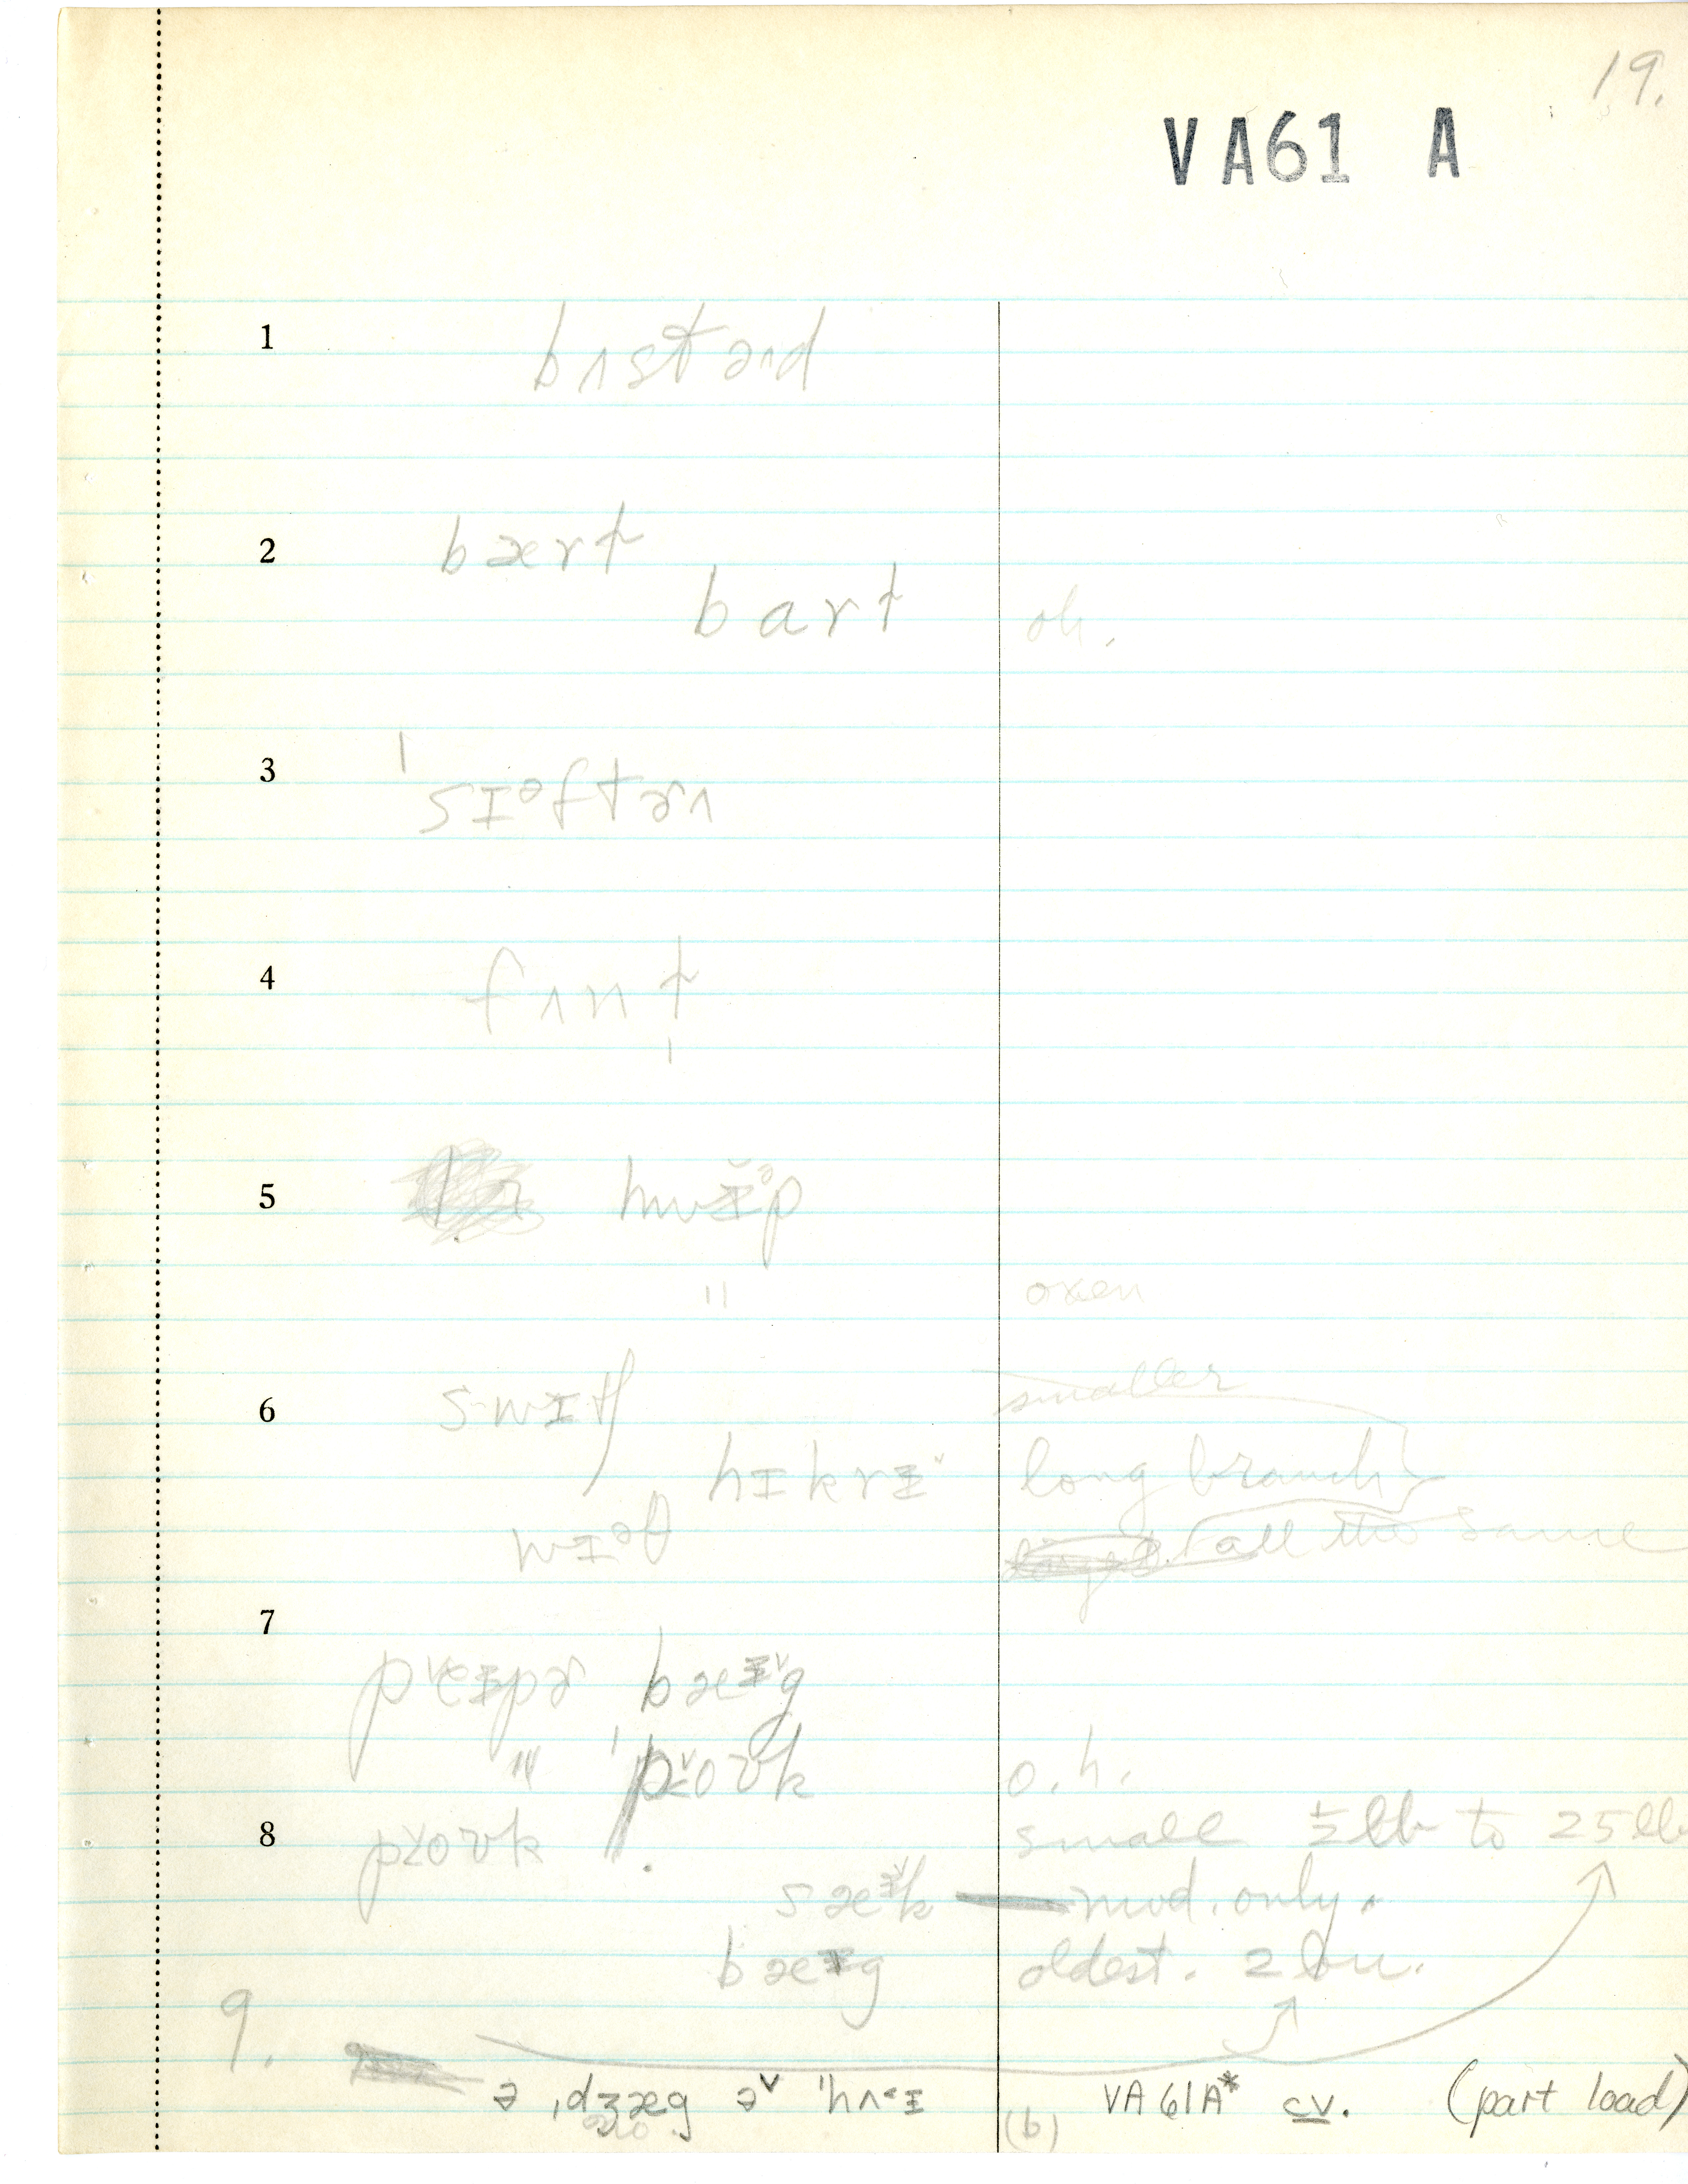 19.
VA61 A
1 bʌstəɹd
2 bært
bart oh.
3 ˈsɪəftɚ
4 fʌnt
5 hwɪ̆ᵊp
" oxen
6 swɪtʃ smaller
hɪkrɪ˅ long branch
wɪəθ all the same
7
pᵛeɪpɚ bæɪ˅g
" ˈpoʊk o.h.
8 poʊk small ± lb to 25 lb
sæɪ˅k — mod. only.
bæɪg oldest. 2 bu.
9.
ə ˌdʒæg əᵛ ˈhʌ˂ɪ (b) VA61A* cv. (part load)